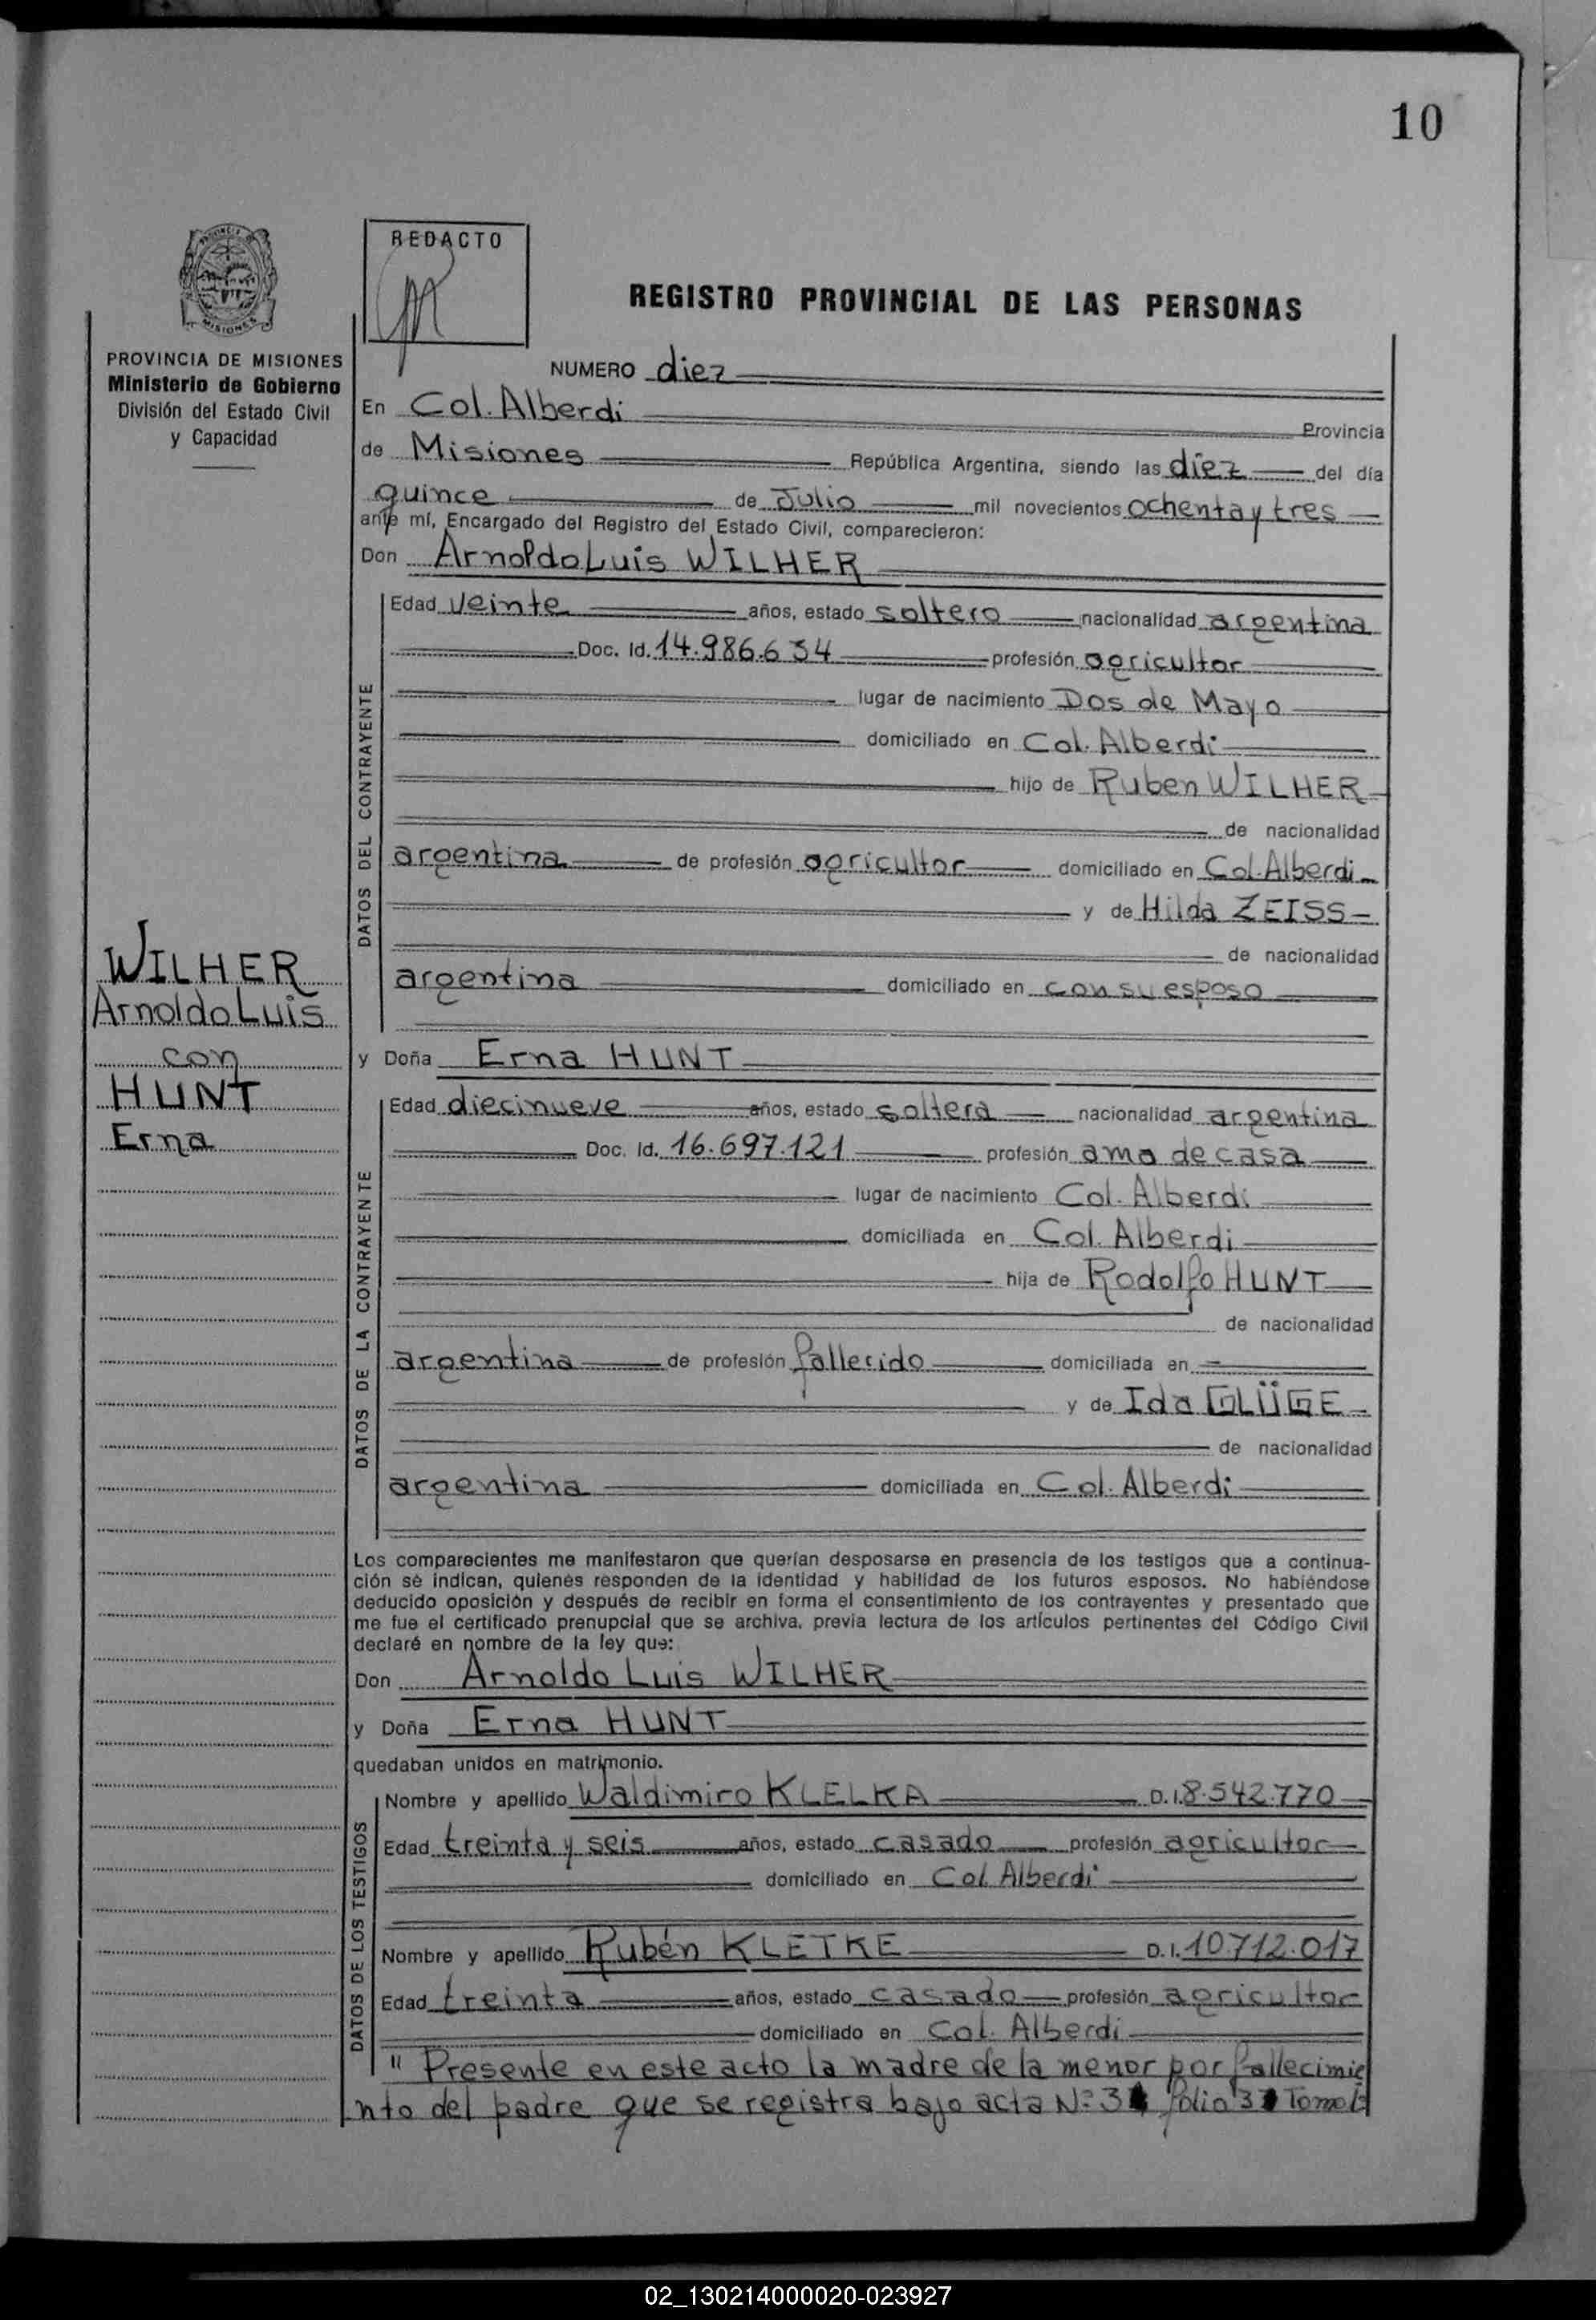 10
REDACTO
REGISTRO PROVINCIAL DE LAS PERSONAS
MISIONES
PROVINCIA DE MISIONES
Ministerio de Gobierno
División del Estado Civil
y Capacidad
NUMERO diez
En Col. Alberdi Provincia
de Misiones República Argentina, siendo las diez del día
quince de Julio mil novecientos ochenta y tres
ante mí, Encargado del Registro del Estado Civil, comparecieron:
Don Arnoldo Luis WILHER
DATOS DEL CONTRAYENTE
Edad veinte años, estado soltero nacionalidad argentina
Doc. Id. 14.986.634 profesión agricultor
lugar de nacimiento Dos de Mayo
domiciliado en Col. Alberdi
hijo de Ruben WILHER
de nacionalidad
argentina de profesión agricultor domiciliado en Col. Alberdi
y de Hilda ZEISS
de nacionalidad
argentina domiciliado en con su esposo
WILHER
Arnoldo Luis
con
HUNT
Erna
y Doña Erna HUNT
DATOS DE LA CONTRAYENTE
Edad diecinueve años, estado soltera nacionalidad argentina
Doc. Id. 16.697.121 profesión ama de casa
lugar de nacimiento Col. Alberdi
domiciliada en Col. Alberdi
hija de Rodolfo HUNT
de nacionalidad
argentina de profesión fallecido domiciliada en —
y de Ida GLÜGE
de nacionalidad
argentina domiciliada en Col. Alberdi
Los comparecientes me manifestaron que querían desposarse en presencia de los testigos que a continua-
ción se indican, quienes responden de la identidad y habilidad de los futuros esposos. No habiéndose
deducido oposición y después de recibir en forma el consentimiento de los contrayentes y presentado que
me fue el certificado prenupcial que se archiva, previa lectura de los artículos pertinentes del Código Civil
declaré en nombre de la ley que:
Don Arnoldo Luis WILHER
y Doña Erna HUNT
quedaban unidos en matrimonio.
DATOS DE LOS TESTIGOS
Nombre y apellido Waldimiro KLELKA D.I. 8.542.770
Edad treinta y seis años, estado casado profesión agricultor
domiciliado en Col. Alberdi
Nombre y apellido Rubén KLETKE D.I. 10.712.017
Edad treinta años, estado casado profesión agricultor
domiciliado en Col. Alberdi
" Presente en este acto la madre de la menor por fallecimie
nto del padre que se registra bajo acta Nº folio Tomo
02_130214000020-023927